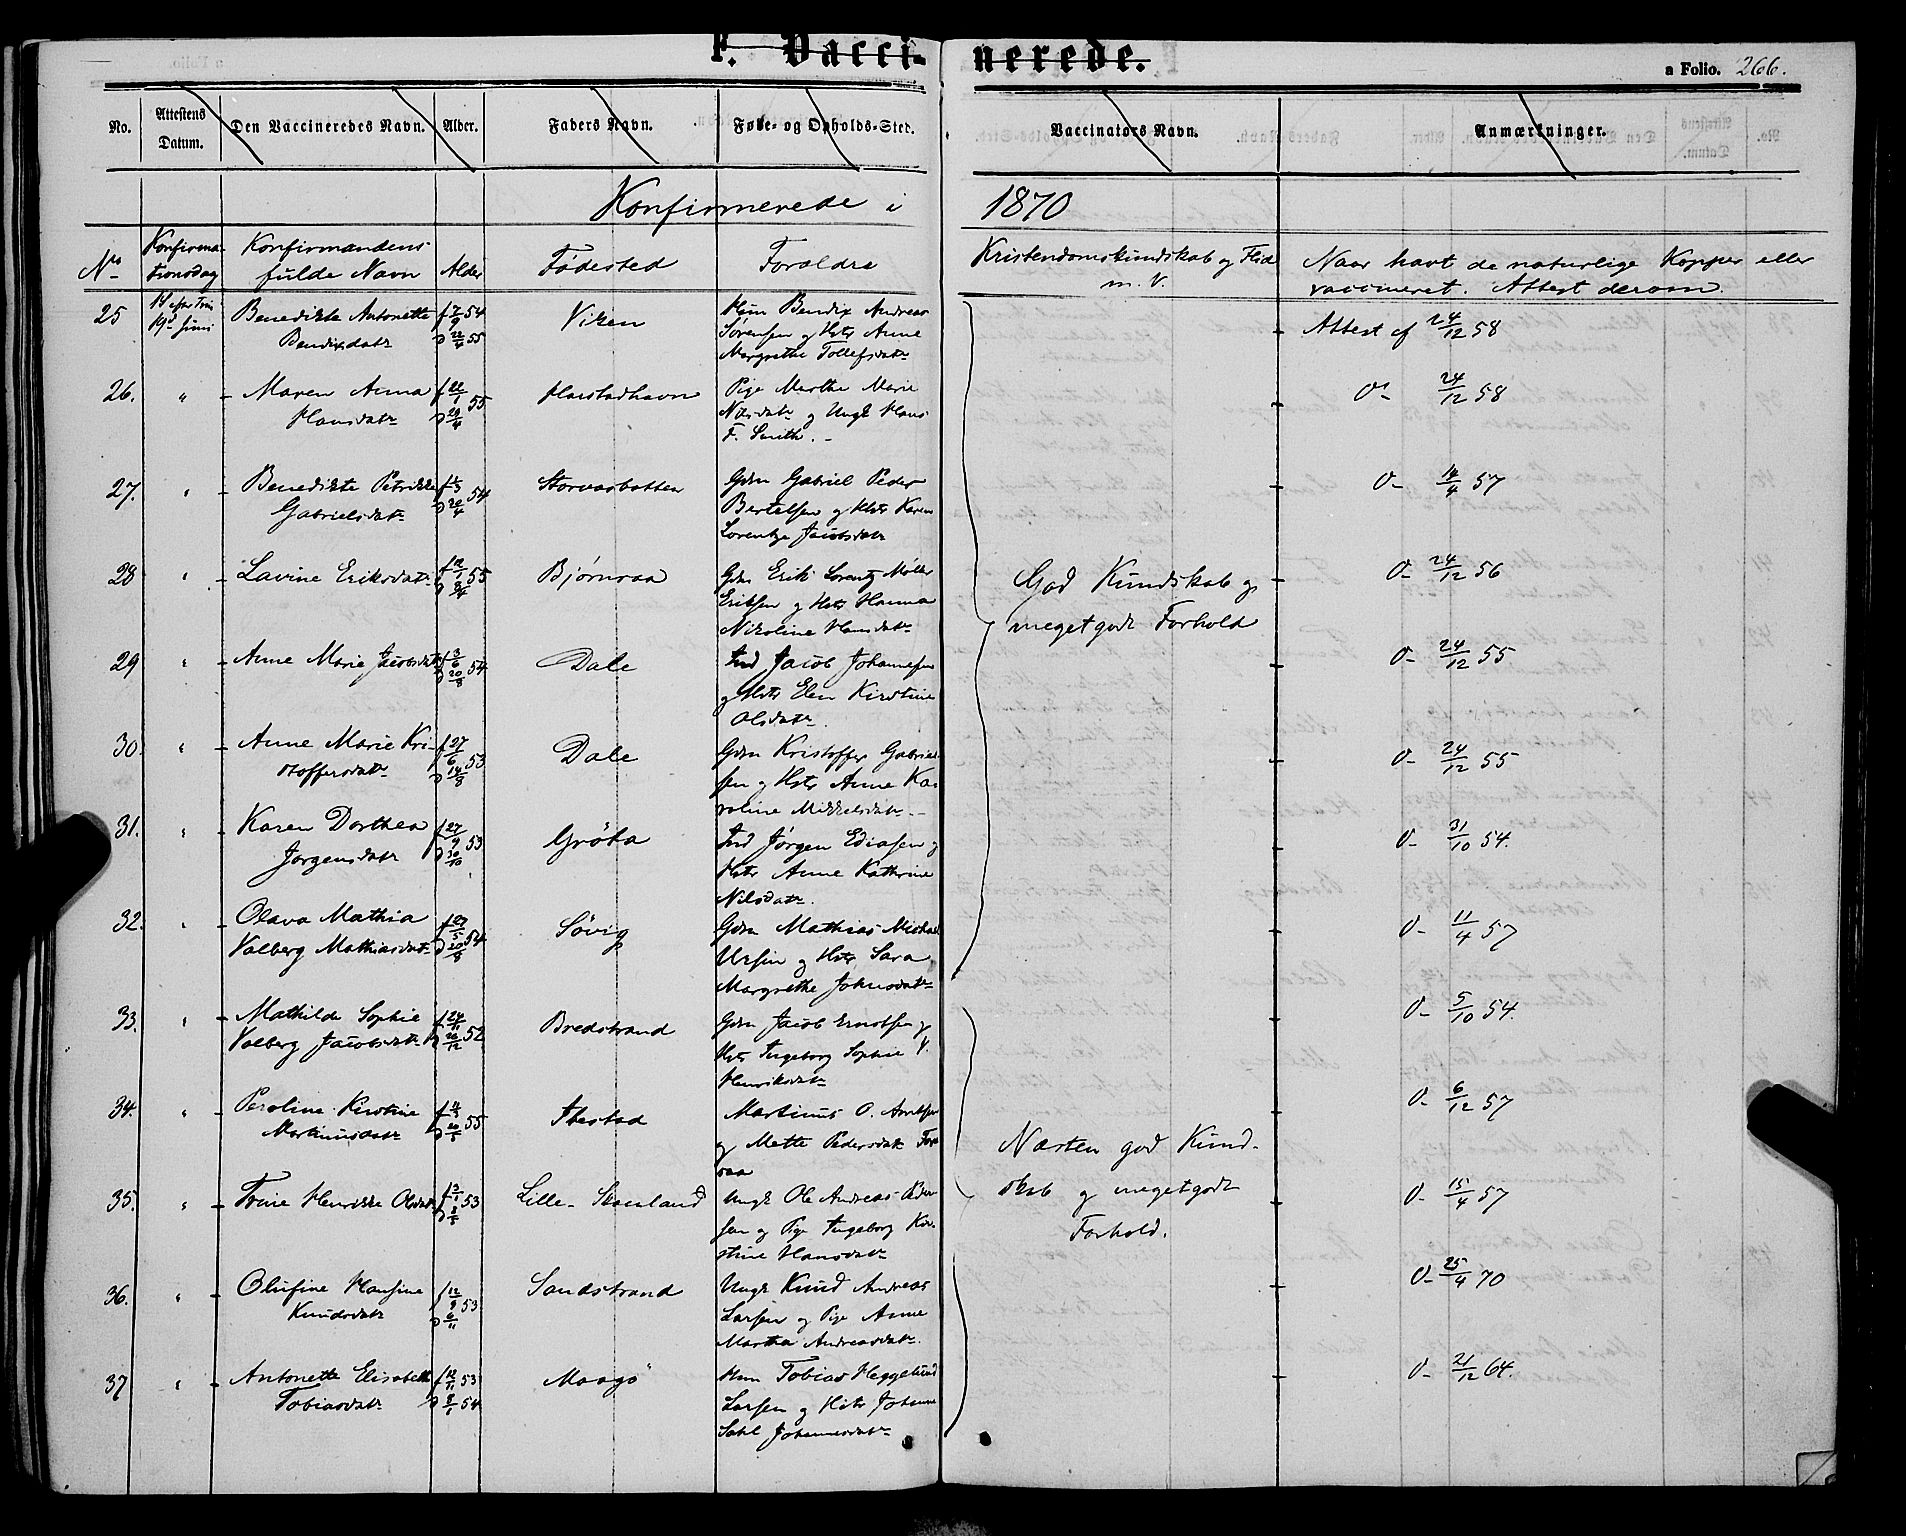 F. Vacci-nerede.
a Folio. 266.
No. Attestens Datum. Den Vaccineredes Navn. Alder. Faders Navn. Føde- og Opholds-Sted. Vaccinators Navn. Anmærkninger.
Konfirmerede i 1870
No Konfirma-tionsdag Konfirmandens fulde Navn Alder Fødested Foraldre Kristendomskundskab og Flid m. V. Naar havt de naturlige Kopper eller vaccineret. Attest derom.
25 19d Juni Benedikte Antonette f 7/9 54 Viken Hum Bendix Andreas Attest af 24/12 58
Bendixdatr D 22/4 55 Sørensen og Hstr Anne
Margrethe Tollefsdatr
26. " - Maren Anna f 22/1 55 Harstadhavn Pige Marthe Marie D- 24/12 58
Hansdatr D 29/4 Nilsdatr og Ungk Hans
F. Smith. -
27. " - Benedikte Petrikke 54 Storvasbotten Gdm Gabriel Peder D- 14/4 57
Gabrielsdatr D 30/4 Bertelsen og Hstr Karen
Lorentze Jacobsdatr
28 " - Lavine Eriksdatr f 12/1 55 Bjørnraa Gdm Erik Lorentz Møller D- 24/12 56
Eriksen og Hstr Hanna
Nikoline Hansdatr
God Kundskab og
meget godt Forhold
29 " - Anne Marie Jacobsdatr f 3/6 54 Dale Ind Jacob Johannesen D- 24/12 55
D 20/8 og Hstr Elen Kirstine
Olsdatr.
30. " - Anne Marie Kri- f 27/6 53 Dale Gdm Kristoffer Gabriel- D- 24/12 55
stoffersdatr D 14/8 sen og Hstr Anne Ka-
roline Mikkelsdatr. -
31. " - Karen Dorthea f 27/9 53 Grøta Ind Jørgen Ediasen og D- 31/10 54.
Jørgensdatr D 30/10 Hstr Anne Kathrine
Nilsdatr.
32. " - Olava Mathia f 27/5 54 Søvig Gdm Mathias Michael D- 11/4 57
Valberg Mathiasdatr D 20/8 Ursin og Hstr Sara
Margrethe Johnsdatr
33. " - Mathilde Sophie f 24/11 52 Bredstrand Gdm Jacob Ernstsen og D- 5/10 54.
Valberg Jacobsdatr D 26/12 Hstr Ingeborg Sophie V.
Henriksdatr
34. " - Peroline Kirstine 55 Ibestad Martinus O. Arntsen D- 6/12 57
Martinusdatr D 20/5 og Mette Pedersdatr For
raa
Næsten god Kund-
skab og meget godt
Forhold.
35. " - Trine Henrikke Olsdatr f 3/1 53 Lille-Skanland Ungk Ole Andreas Peder D- 15/4 57
D 8/5 sen og Pige Ingeborg Kir-
stine Hansdatr
36. " - Olufine Hansine f 12/9 53 Sandstrand Ungk Knud Andreas D- 25/4 70
Knudsdatr D 6/11 Larsen og Pige Anne
Martha Andreasdatr.
37 " - Antonette Elisabeth f 12/11 53 Maagø Hum Tobias Heggelund D- 21/12 64.
Tobiasdatr D 8/1 54 Larsen og Hstr Johanne
Sahl Johannesdatr